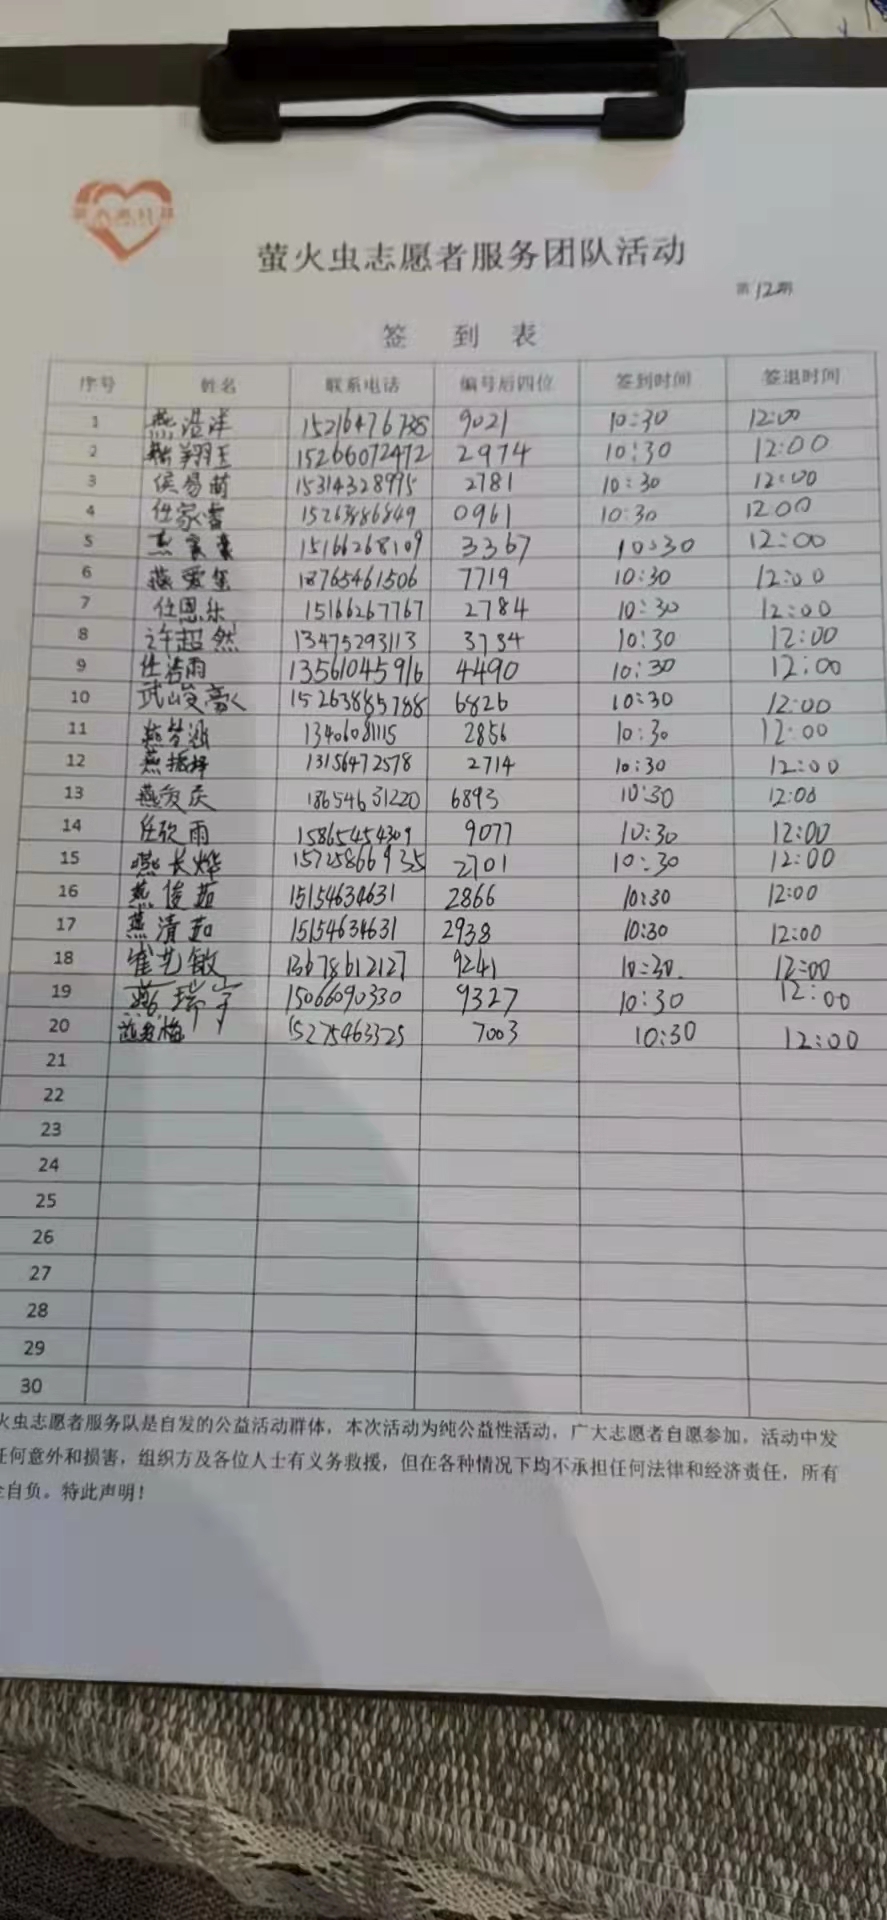 萤火虫志愿者服务团队活动
第12期
签 到 表
序号 姓名 联系电话 编号后四位 签到时间 签退时间
1 燕浩洋 15216476738 9021 10:30 12:00
2 翔玉 15266072472 2974 10:30 12:00
3 侯易萌 15314328995 2781 10:30 12:00
4 任家睿 15263886849 0961 10:30 12 00
5 燕家豪 15166268109 3367 10:30 12:00
6 燕爱玺 18765461506 7719 10:30 12:00
7 任恩乐 15166267767 2784 10:30 12:00
8 许超然 13475293113 3734 10:30 12:00
9 任浩雨 13561045916 4490 10:30 12:00
10 武峻豪 15263885788 6826 10:30 12:00
11 燕梦涵 13406081115 2856 10:30 12:00
12 燕 13156472578 2714 10:30 12:00
13 燕爱庆 18654631220 6893 10:30 12:00
14 任欣雨 15865454309 9077 10:30 12:00
15 燕长烨 15725866935 2701 10:30 12:00
16 燕俊茹 15154634631 2866 10:30 12:00
17 燕清茹 15154634631 2938 10:30 12:00
18 崔艺敏 13678612127 9241 10:30. 12:00
19 燕瑞宇 15066090330 9327 10:30 12:00
20 燕爱梅 15275463325 7003 10:30 12:00
21
22
23
24
25
26
27
28
29
30
火虫志愿者服务队是自发的公益活动群体，本次活动为纯公益性活动，广大志愿者自愿参加，活动中发
任何意外和损害，组织方及各位人士有义务救援，但在各种情况下均不承担任何法律和经济责任，所有
自负。特此声明！